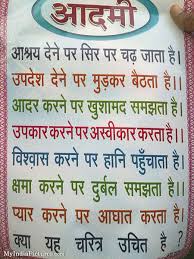 आदमी
आश्रय देने पर सिर पर चढ़ जाता है।
उपदेश देने पर मुड़कर बैठता है।।
आदर करने पर खुशामद समझता है।
उपकार करने पर अस्वीकार करता है।।
विश्वास करने पर हानि पहुँचाता है।
क्षमा करने पर दुर्बल समझता है।।
प्यार करने पर आघात करता है।
क्या यह चरित्र उचित है ?
MyIndiaPictures.com